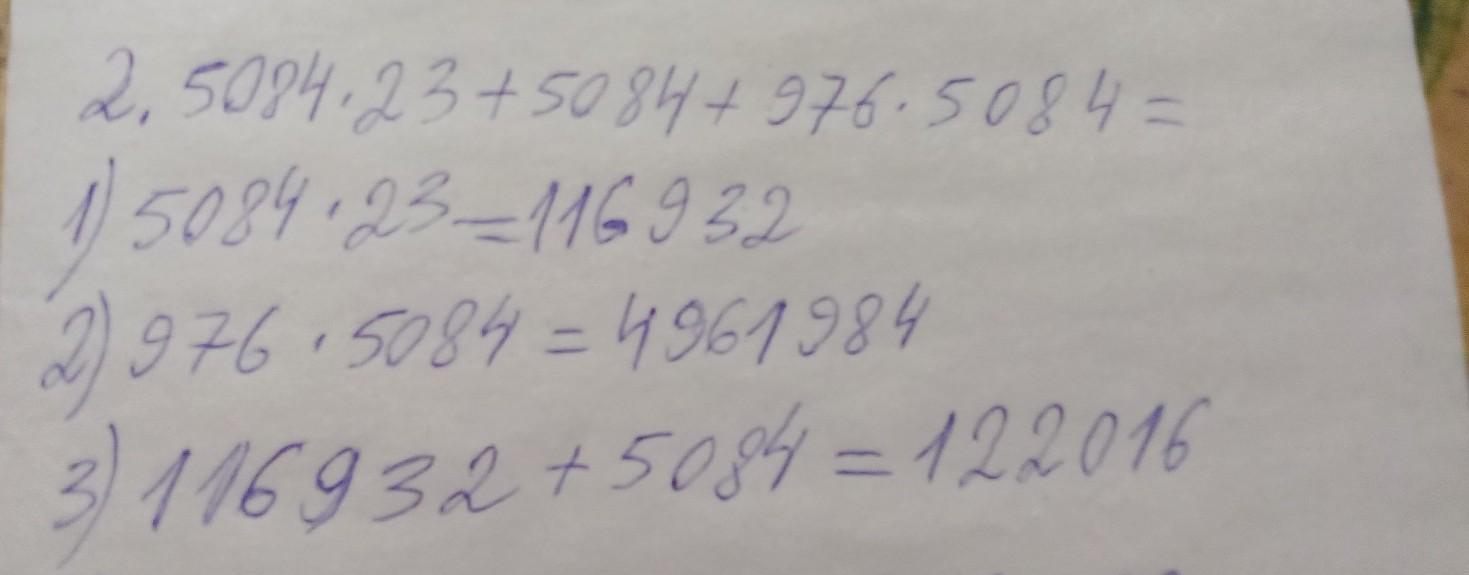 2. 5084·23+5084+976·5084=
1) 5084·23=116932
2) 976·5084=4961984
3) 116932+5084=122016